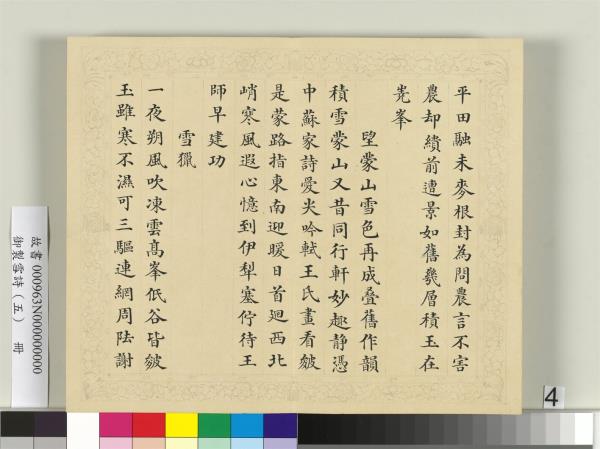 平田融未麥根封為問農言不害
農却續前遭景如舊幾層積玉在
尭峯
望蒙山雪色再成疊舊作韻
積雪蒙山又昔同行軒妙趣静憑
中蘇家詩愛尖吟軾王氏畫看皴
是蒙路指東南迎暖日首迴西北
峭寒風遐心憶到伊犁塞佇待王
師早建功
雪獵
一夜朔風吹凍雲髙峯低谷皆皴
玉雖寒不濕可三驅連網周阹謝
故書000963N000000000
御製雪詩（五） 冊
4